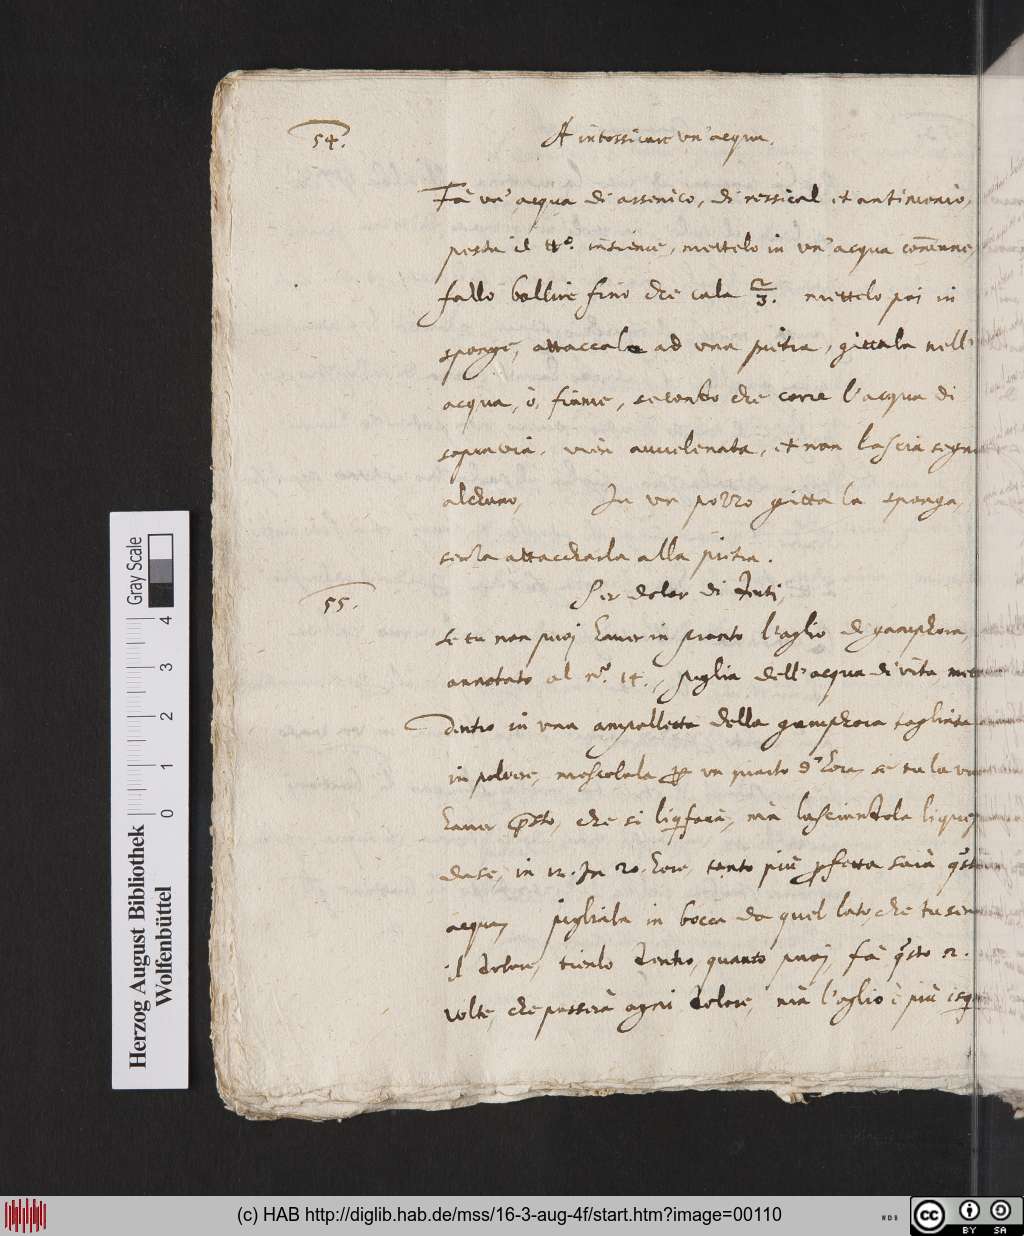 54. A intossicare un'acqua.
Fà un'acqua di arsenico, di ressical et antimonio,
pesta il tt.º insieme, mettelo in un'acqua comune,
fallo bollire fino che cala 2/3. mettelo poi in
sponge, attaccale ad una pietra, gittala nell'
acqua, ò, fiume, secondo che corre l'acqua di
sopravia, vien auuelenata, et non lascia segn
alchuno, In un pozzo gitta la sponga,
senza attaccharla alla pietra.
55. Per dolor di denti,
se tu non puoi hauer in pronto l'oglio di gamphora,
annotato al n.º 14., piglia dell'acqua di vita, met
dentro in una ampolletta della gamphora tagliata
in polvere, mescolala p un quarto d'hora, se tu la vu
hauer p̃sto, che si liq̃farà, mà lasciandola lique,
darse, in 12. In 20. hore, tanto più pfetta sarà q̃sta
acqua, pigliala in bocca da quel lato, che tu sen
il dolore, tienlo dentro, quanto puoi, fà q̃sto 2.
volte, che passerà ogni dolore, mà l'oglio è più esq
Herzog August Bibliothek
Wolfenbüttel
0 1 2 3 4
Gray Scale
(c) HAB http://diglib.hab.de/mss/16-3-aug-4f/start.htm?image=00110
WDB
cc BY SA